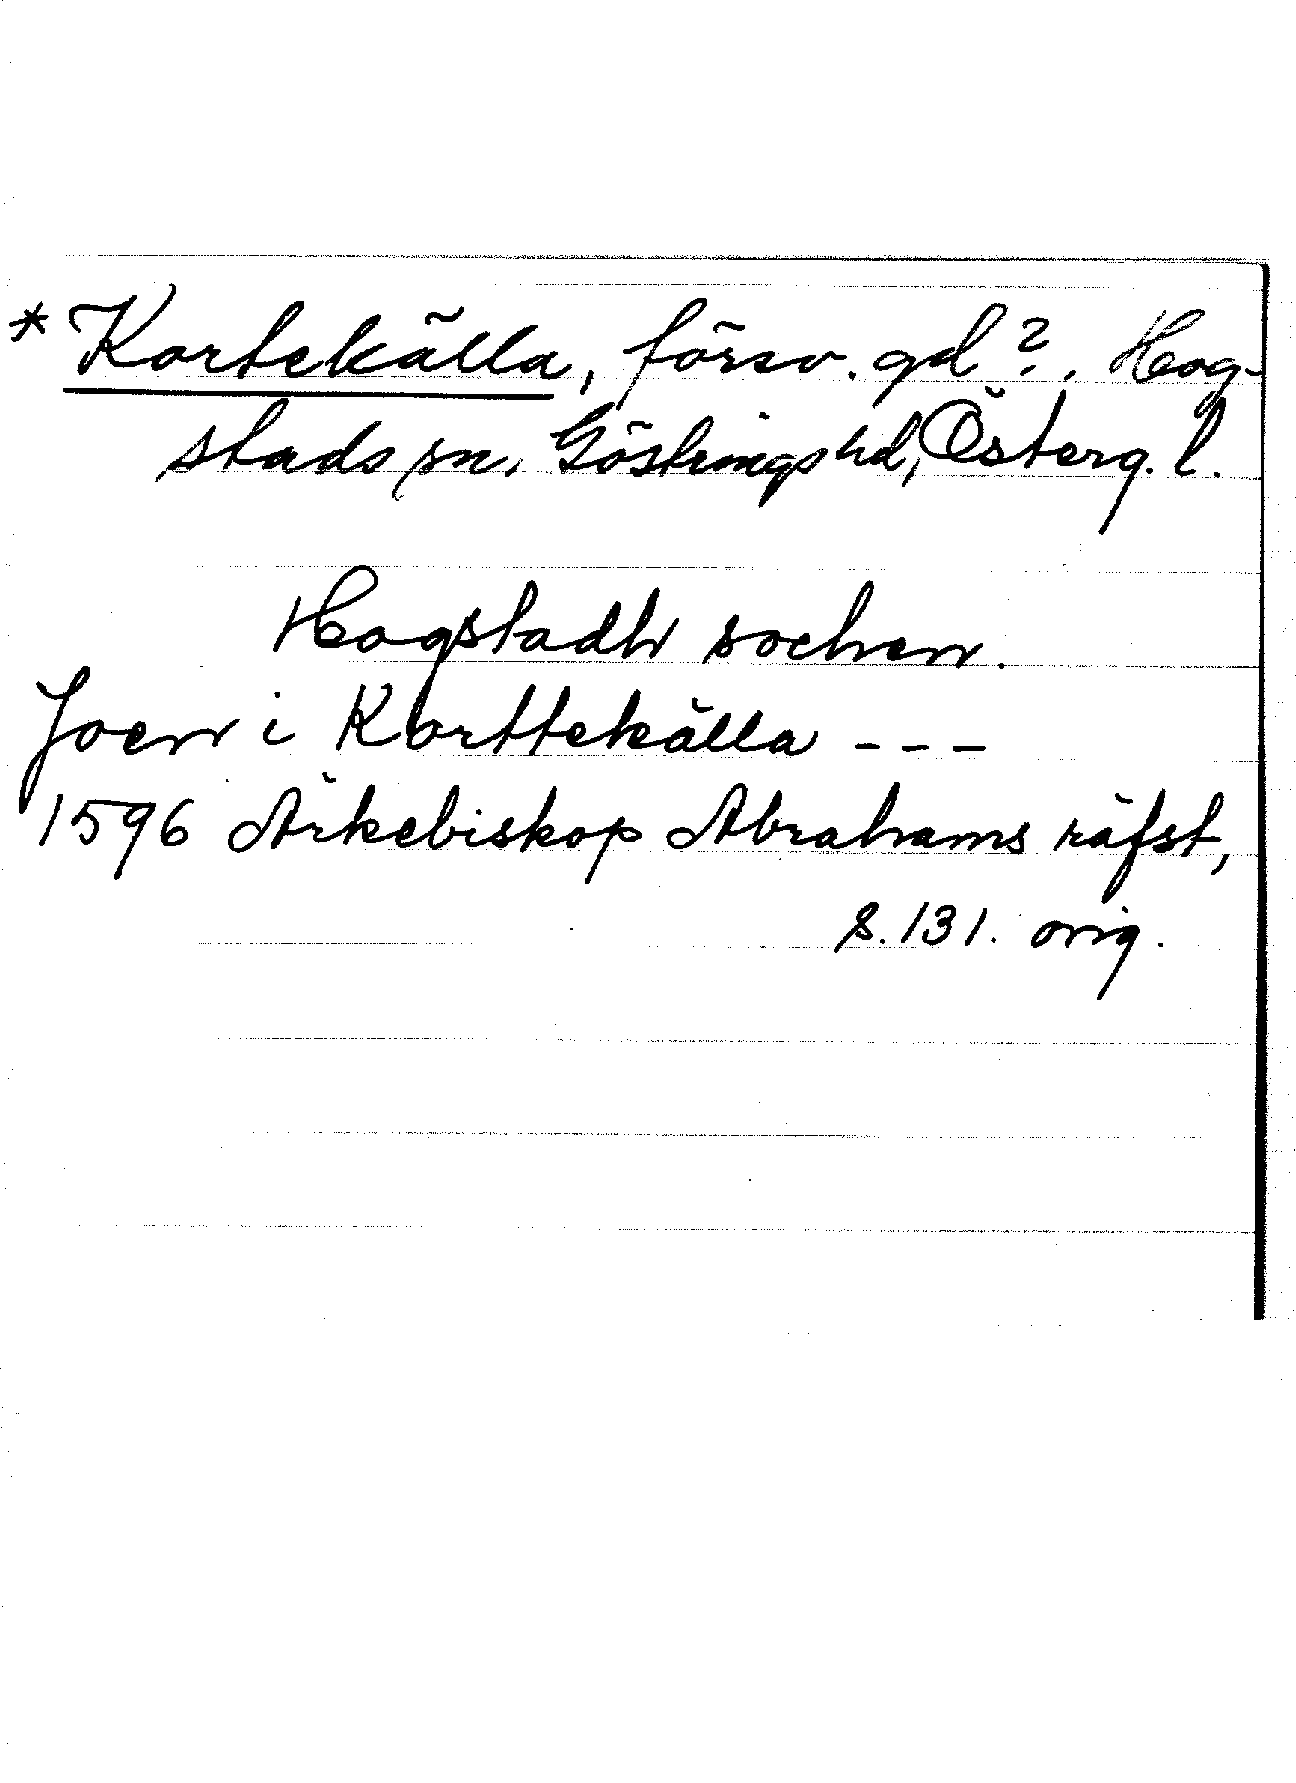 * Kortekälla, försv. gd?. Hog-
stads sn, Göstrings hd, Österg. l.
Hogstadh sochen.
Joen i Korttekälla - - -
1596 Ärkebiskop Abrahams räfst,
s. 131. orig.